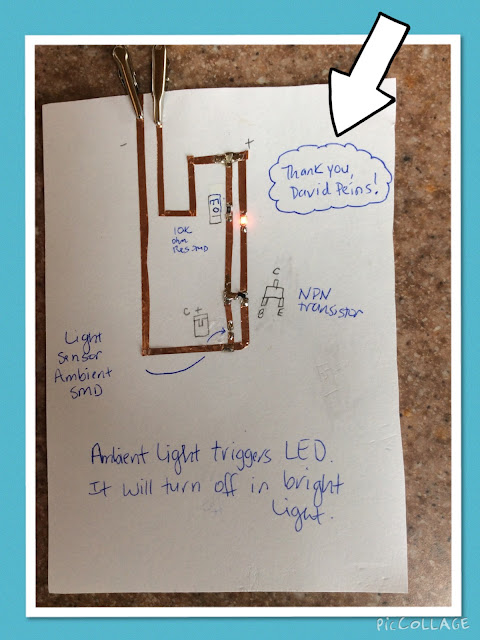 -
+
Thank you,
David Peins!
10K
ohm
Res SMD
C
B E
NPN
transistor
C +
Light
Sensor
Ambient
SMD
Ambient Light triggers LED.
It will turn off in bright
Light.
PicCOLLAGE